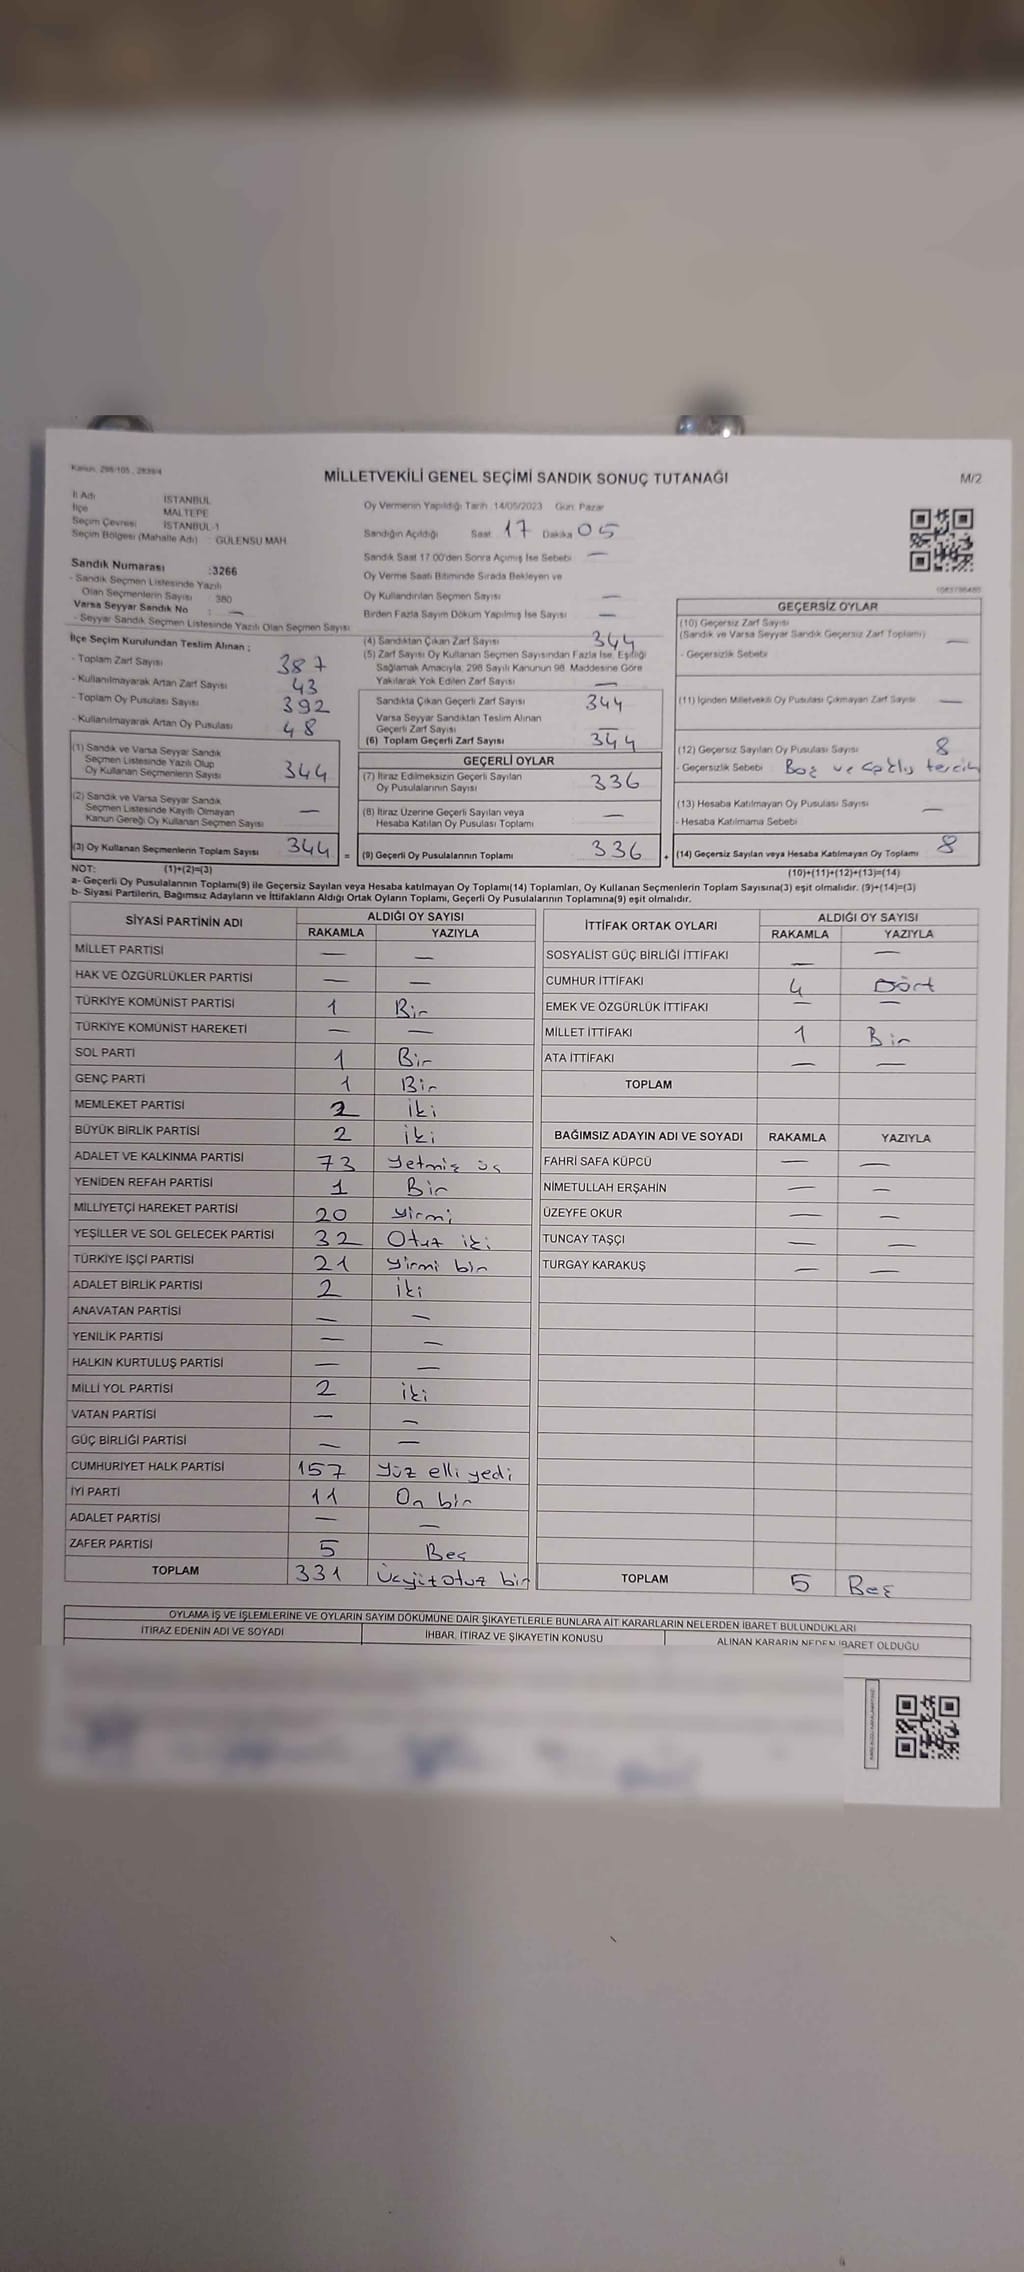 Kanun: 298/105, 2839/4
MİLLETVEKİLİ GENEL SEÇİMİ SANDIK SONUÇ TUTANAĞI
M/2
İl Adı : İSTANBUL
İlçe : MALTEPE
Seçim Çevresi : İSTANBUL-1
Seçim Bölgesi (Mahalle Adı) : GÜLENSU MAH.
Sandık Numarası :3266
- Sandık Seçmen Listesinde Yazılı
Olan Seçmenlerin Sayısı : 380
Varsa Seyyar Sandık No : —
- Seyyar Sandık Seçmen Listesinde Yazılı Olan Seçmen Sayısı:
Oy Vermenin Yapıldığı Tarih: 14/05/2023 Gün: Pazar
Sandığın Açıldığı Saat: 17 Dakika 05
Sandık Saat 17.00'den Sonra Açımış İse Sebebi —
Oy Verme Saati Bitiminde Sırada Bekleyen ve
Oy Kullandırılan Seçmen Sayısı —
Birden Fazla Sayım Döküm Yapılmış İse Sayısı —
İlçe Seçim Kurulundan Teslim Alınan ;
- Toplam Zarf Sayısı 387
- Kullanılmayarak Artan Zarf Sayısı 43
- Toplam Oy Pusulası Sayısı 392
- Kullanılmayarak Artan Oy Pusulası 48
(1) Sandık ve Varsa Seyyar Sandık
Seçmen Listesinde Yazılı Olup
Oy Kullanan Seçmenlerin Sayısı 344
(2) Sandık ve Varsa Seyyar Sandık
Seçmen Listesinde Kayıtlı Olmayan
Kanun Gereği Oy Kullanan Seçmen Sayısı —
(3) Oy Kullanan Seçmenlerin Toplam Sayısı 344 =
(4) Sandıktan Çıkan Zarf Sayısı 344
(5) Zarf Sayısı Oy Kullanan Seçmen Sayısından Fazla İse, Eşitliği
Sağlamak Amacıyla, 298 Sayılı Kanunun 98. Maddesine Göre
Yakılarak Yok Edilen Zarf Sayısı —
Sandıkta Çıkan Geçerli Zarf Sayısı 344
Varsa Seyyar Sandıktan Teslim Alınan
Geçerli Zarf Sayısı —
(6) Toplam Geçerli Zarf Sayısı 344
GEÇERLİ OYLAR
(7) İtiraz Edilmeksizin Geçerli Sayılan
Oy Pusulalarının Sayısı 336
(8) İtiraz Üzerine Geçerli Sayılan veya
Hesaba Katılan Oy Pusulası Toplamı —
(9) Geçerli Oy Pusulalarının Toplamı 336 +
GEÇERSİZ OYLAR
(10) Geçersiz Zarf Sayısı
(Sandık ve Varsa Seyyar Sandık Geçersiz Zarf Toplamı) —
- Geçersizlik Sebebi
(11) İçinden Milletvekili Oy Pusulası Çıkmayan Zarf Sayısı —
(12) Geçersiz Sayılan Oy Pusulası Sayısı 8
- Geçersizlik Sebebi Boş ve tercih
(13) Hesaba Katılmayan Oy Pusulası Sayısı —
- Hesaba Katılmama Sebebi
(14) Geçersiz Sayılan veya Hesaba Katılmayan Oy Toplamı 8
NOT: (1)+(2)=(3) (10)+(11)+(12)+(13)=(14)
a- Geçerli Oy Pusulalarının Toplamı(9) ile Geçersiz Sayılan veya Hesaba katılmayan Oy Toplamı(14) Toplamları, Oy Kullanan Seçmenlerin Toplam Sayısına(3) eşit olmalıdır. (9)+(14)=(3)
b- Siyasi Partilerin, Bağımsız Adayların ve İttifakların Aldığı Ortak Oyların Toplamı, Geçerli Oy Pusulalarının Toplamına(9) eşit olmalıdır.
SİYASİ PARTİNİN ADI ALDIĞI OY SAYISI
RAKAMLA YAZIYLA
MİLLET PARTİSİ — —
HAK VE ÖZGÜRLÜKLER PARTİSİ — —
TÜRKİYE KOMÜNİST PARTİSİ 1 Bir
TÜRKİYE KOMÜNİST HAREKETİ — —
SOL PARTİ 1 Bir
GENÇ PARTİ 1 Bir
MEMLEKET PARTİSİ 2 iki
BÜYÜK BİRLİK PARTİSİ 2 iki
ADALET VE KALKINMA PARTİSİ 73 Yetmiş üç
YENİDEN REFAH PARTİSİ 1 Bir
MİLLİYETÇİ HAREKET PARTİSİ 20 Yirmi
YEŞİLLER VE SOL GELECEK PARTİSİ 32 Otuz iki
TÜRKİYE İŞÇİ PARTİSİ 21 Yirmi bir
ADALET BİRLİK PARTİSİ 2 iki
ANAVATAN PARTİSİ — —
YENİLİK PARTİSİ — —
HALKIN KURTULUŞ PARTİSİ — —
MİLLİ YOL PARTİSİ 2 iki
VATAN PARTİSİ — —
GÜÇ BİRLİĞİ PARTİSİ — —
CUMHURİYET HALK PARTİSİ 157 Yüz elli yedi
İYİ PARTİ 11 On bir
ADALET PARTİSİ — —
ZAFER PARTİSİ 5 Beş
TOPLAM 331 Üçyüz Otuz bir
İTTİFAK ORTAK OYLARI ALDIĞI OY SAYISI
RAKAMLA YAZIYLA
SOSYALİST GÜÇ BİRLİĞİ İTTİFAKI — —
CUMHUR İTTİFAKI 4 Dört
EMEK VE ÖZGÜRLÜK İTTİFAKI — —
MİLLET İTTİFAKI 1 Bir
ATA İTTİFAKI — —
TOPLAM
BAĞIMSIZ ADAYIN ADI VE SOYADI RAKAMLA YAZIYLA
FAHRİ SAFA KÜPCÜ — —
NİMETULLAH ERŞAHİN — —
ÜZEYFE OKUR — —
TUNCAY TAŞÇI — —
TURGAY KARAKUŞ — —
TOPLAM 5 Beş
OYLAMA İŞ VE İŞLEMLERİNE VE OYLARIN SAYIM DÖKÜMÜNE DAİR ŞİKAYETLERLE BUNLARA AİT KARARLARIN NELERDEN İBARET BULUNDUKLARI
İTİRAZ EDENİN ADI VE SOYADI İHBAR, İTİRAZ VE ŞİKAYETİN KONUSU ALINAN KARARIN NEDEN İBARET OLDUĞU